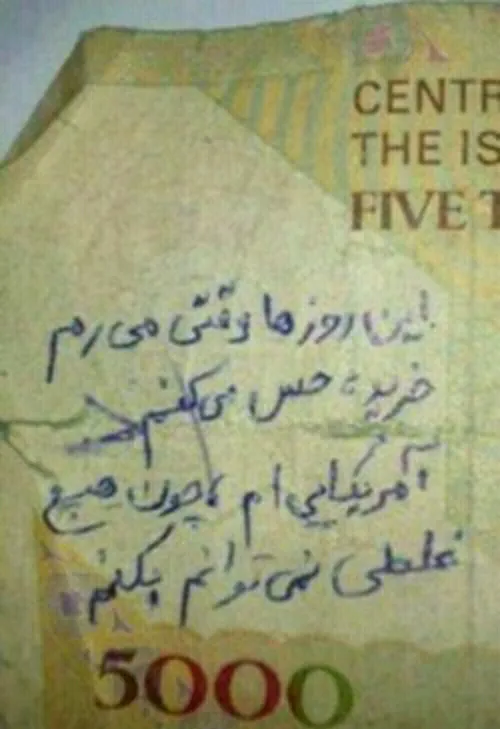 CENTR
THE IS
FIVE T
این روزها وقتی می رم
خرید، حس می کنم
آمریکایی ام، چون هیچ
غلطی نمی توانم بکنم
5000